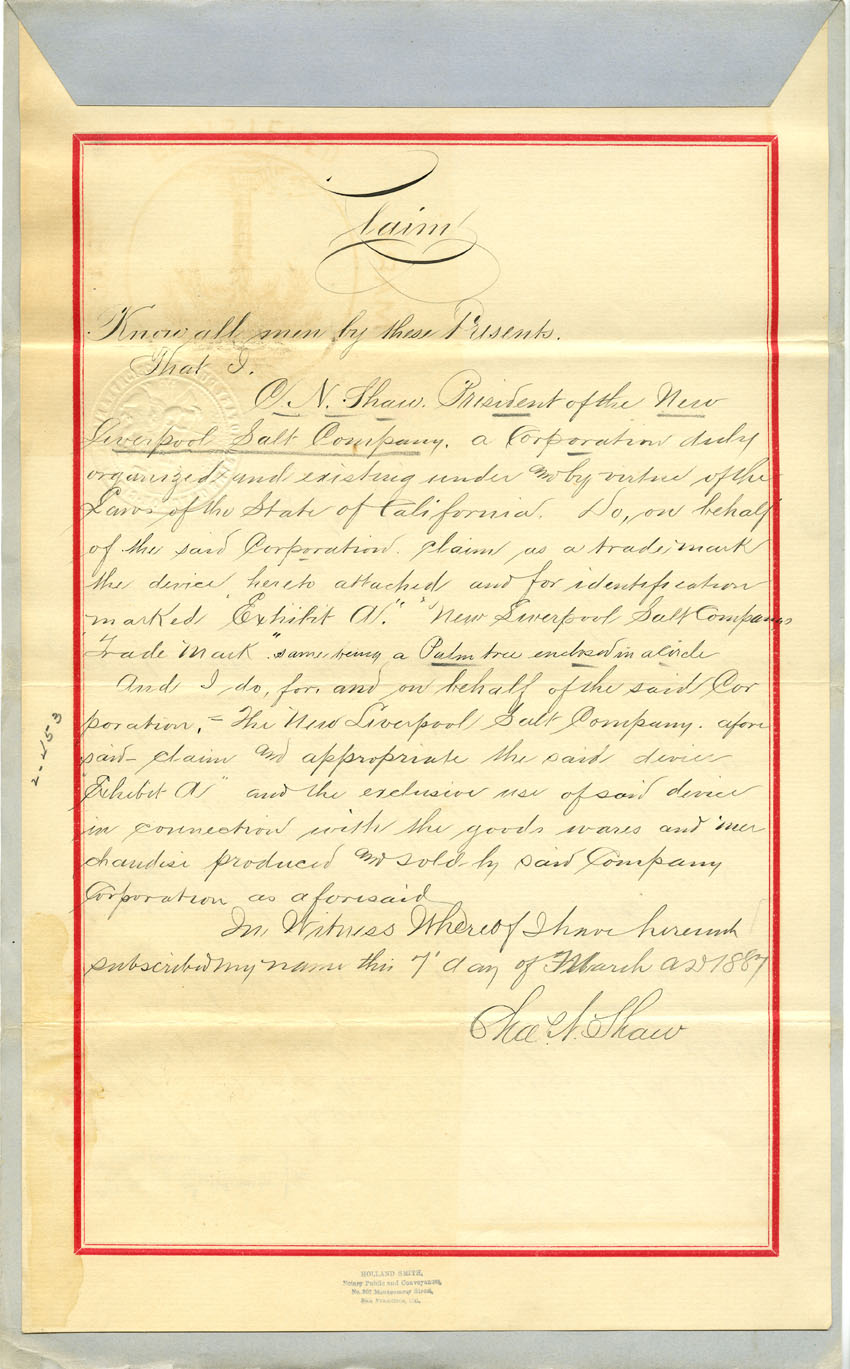 Claim
Know all men by these Presents.
That I.
C. N. Shaw. President of the New
Liverpool Salt Company. a Corporation duly
organized and existing under and by virtue of the
Laws of the State of California. Do, on behalf
of the said Corporation. claim as a trade mark
the device hereto attached and for identification
marked "Exhibit A". "New Liverpool Salt Companys
Trade Mark". same being a Palm tree enclosed in a Circle
And I do, for, and on behalf of the said Cor
poration, = The New Liverpool Salt Company. afore
said - claim and appropriate the said device
"Exhibit A" and the exclusive use of said device
in connection with the goods wares and mer
chandise produced and sold by said Company
Corporation as aforesaid
In Witness Whereof I have hereunto
subscribed my name this 7' day of March AD 1887
Chas. N. Shaw
2-453
HOLLAND SMITH,
Notary Public and Conveyancer,
Montgomery Street,
San Francisco,